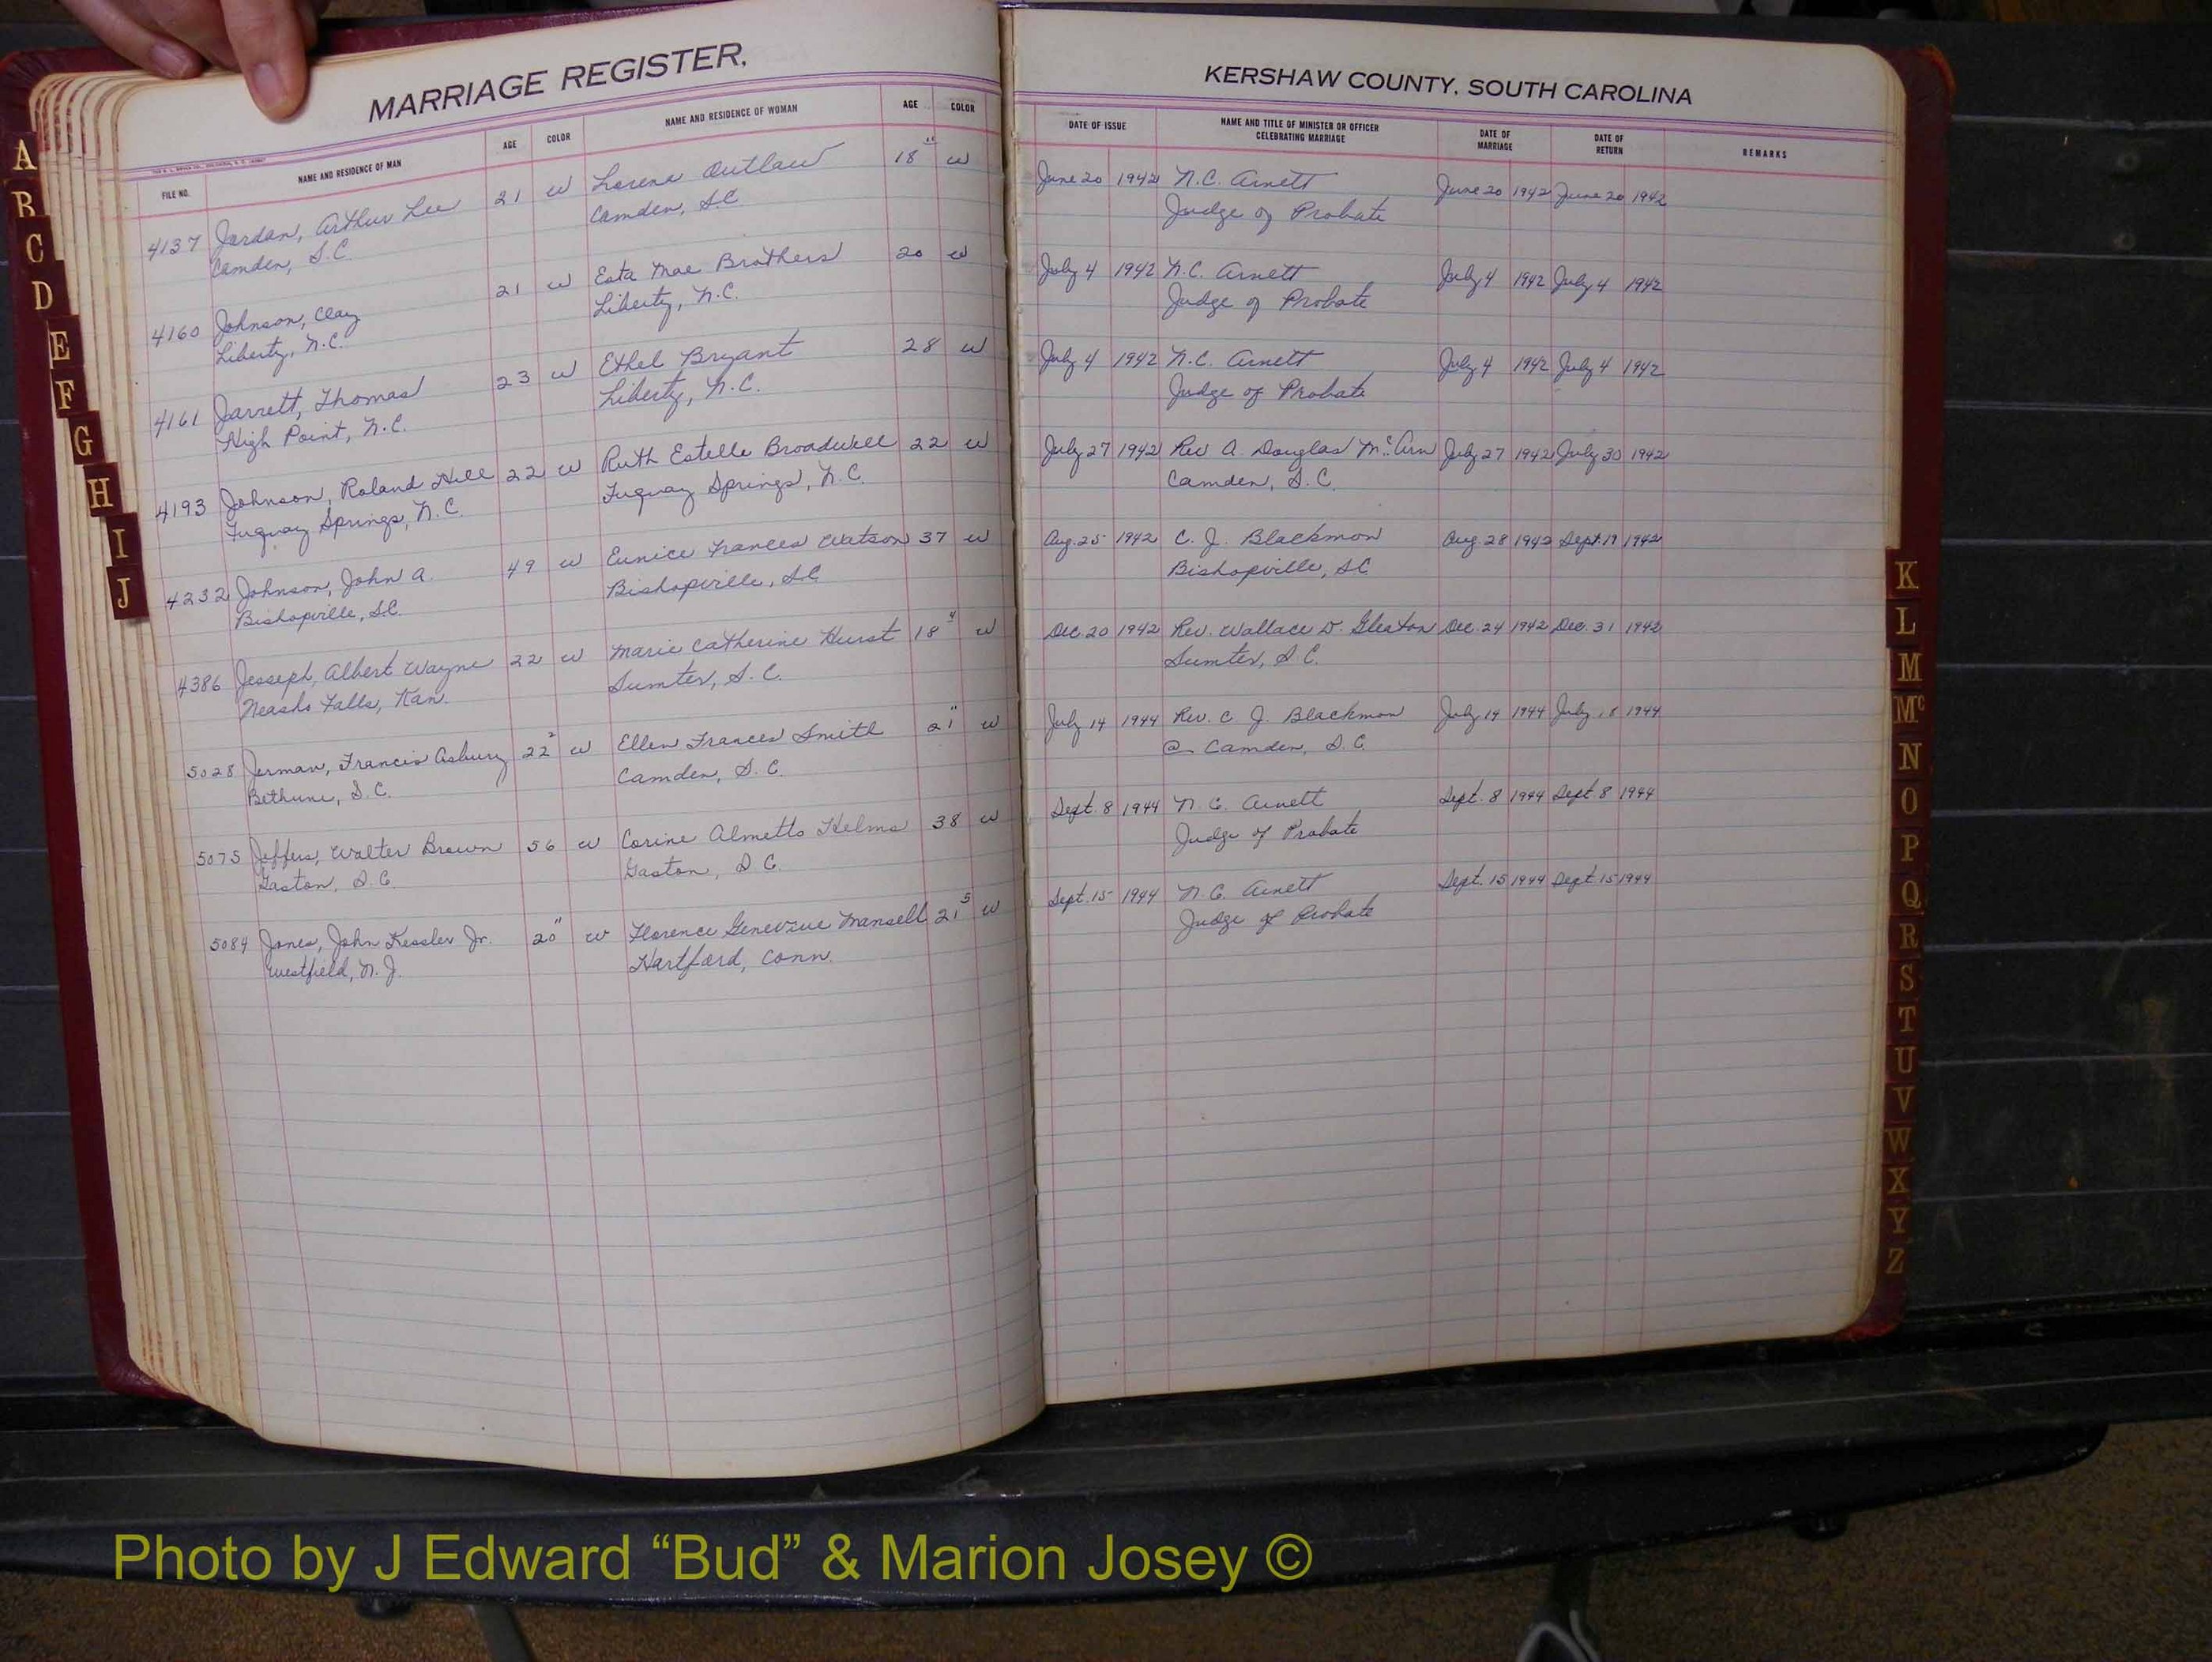 MARRIAGE REGISTER,
FILE NO. NAME AND RESIDENCE OF MAN AGE COLOR NAME AND RESIDENCE OF WOMAN AGE COLOR
4137 Jordan, Arthur Lee 21 W Lorena Outlaw 18 W
Camden, S.C. Camden, S.C.
4160 Johnson, Clay 21 W Esta Mae Brothers 20 W
Liberty, N.C. Liberty, N.C.
4161 Jarrett, Thomas 23 W Ethel Bryant 28 W
High Point, N.C. Liberty, N.C.
4193 Johnson, Roland Hill 22 W Ruth Estelle Broadwell 22 W
Fuquay Springs, N.C. Fuquay Springs, N.C.
4232 Johnson, John A. 49 W Eunice Frances Watson 37 W
Bishopville, S.C. Bishopville, S.C.
4386 Jesseph, Albert Wayne 22 W Marie Catherine Hurst 18 4 W
Neasho Falls, Kan. Sumter, S.C.
5028 Jerman, Francis Asbury 22 2 W Ellen Frances Smith 21 11 W
Bethune, S.C. Camden, S.C.
5075 Walter Brown 56 W Corine Almetto Helms 38 W
Gaston, S.C. Gaston, S.C.
5084 Jones, John Kessler Jr. 20 11 W Florence Mansell 21 5 W
Westfield, N.J. Hartford, Conn.
KERSHAW COUNTY, SOUTH CAROLINA
DATE OF ISSUE NAME AND TITLE OF MINISTER OR OFFICER CELEBRATING MARRIAGE DATE OF MARRIAGE DATE OF RETURN REMARKS
June 20 1942 N.C. Arnett June 20 1942 June 20 1942
Judge of Probate
July 4 1942 N.C. Arnett July 4 1942 July 4 1942
Judge of Probate
July 4 1942 N.C. Arnett July 4 1942 July 4 1942
Judge of Probate
July 27 1942 Rev A. Douglas McArn July 27 1942 July 30 1942
Camden, S.C.
Aug. 25 1942 C. J. Blackmon Aug. 28 1942 Sept. 19 1942
Bishopville, S.C.
Dec. 20 1942 Rev. Wallace D. Gleaton Dec. 24 1942 Dec. 31 1942
Sumter, S.C.
July 14 1944 Rev. C. J. Blackmon July 14 1944 July 18 1944
@ Camden, S.C.
Sept. 8 1944 N.C. Arnett Sept. 8 1944 Sept. 8 1944
Judge of Probate
Sept. 15 1944 N.C. Arnett Sept. 15 1944 Sept. 15 1944
Judge of Probate
A
B
C
D
E
F
G
H
I
J
K
L
M
Mc
N
O
P
Q
R
S
T
U
V
W
X
Y
Z
Photo by J Edward “Bud” & Marion Josey ©